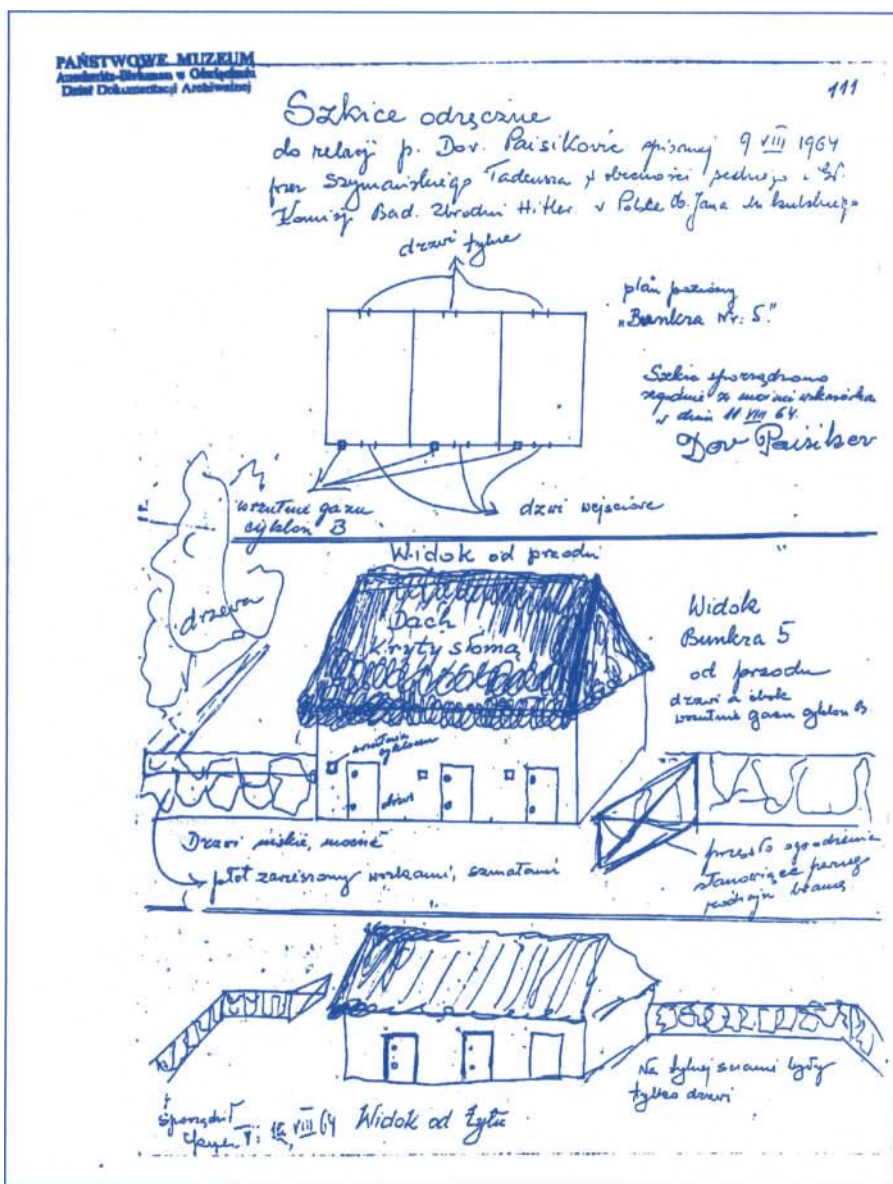 PAŃSTWOWE MUZEUM
Auschwitz-Birkenau w Oświęcimiu
Dział Dokumentacji Archiwalnej
111
Szkice odręczne
do relacji p. Dov. Paisiković spisanej 9 VIII 1964
przez Szymańskiego Tadeusza w obecności sędziego
Komisji Bad. Zbrodni Hitler. w Polsce Ob. Jana
drzwi tylne
plan poziomy
"Bunkra Nr: 5."
Szkic sporządzono
zgodnie z
w dniu 11 VIII 64.
Dov Paisikov
wrzutnie gazu
cyklon B
drzwi wejściowe
Widok od przodu
drzewa
Dach
Kryty słomą
Widok
Bunkra 5
od przodu
drzwi a obok
wrzutnie gazu cyklon B.
wrzutnia
cyklonu
drzwi
Drzwi niskie, mocne
płot zawieszony workami, szmatami
przęsło ogrodzenia
stanowiące pewnego
rodzaju bramę
Na tylnej ścianie były
tylko drzwi
Sporządził
VIII 64
Widok od tyłu